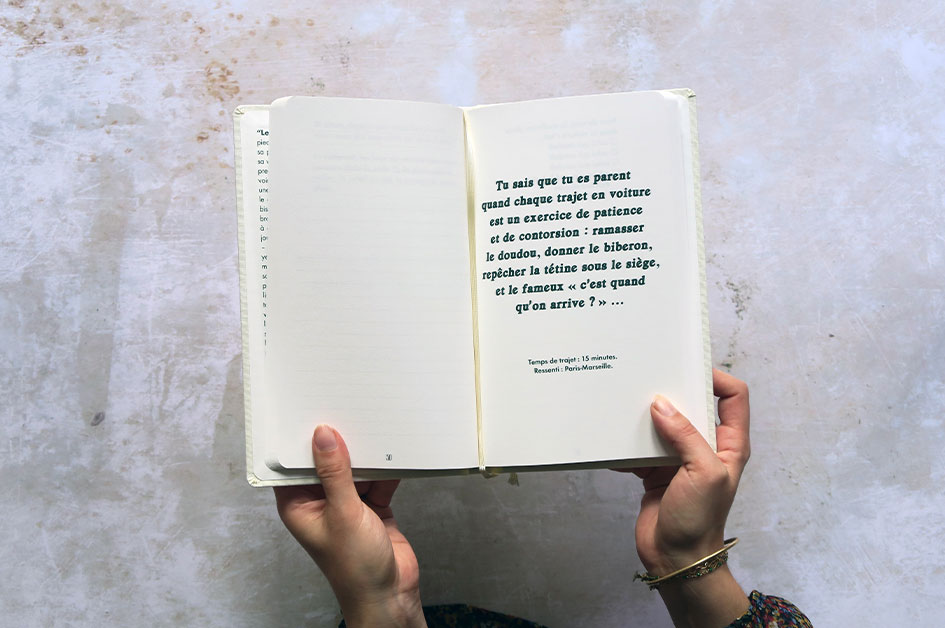 “Le
pied
sa
sa
pre
voi
une
le
bis
bro
à
jou
Tu sais que tu es parent
quand chaque trajet en voiture
est un exercice de patience
et de contorsion : ramasser
le doudou, donner le biberon,
repêcher la tétine sous le siège,
et le fameux « c’est quand
qu’on arrive ? » ...
Temps de trajet : 15 minutes.
Ressenti : Paris-Marseille.